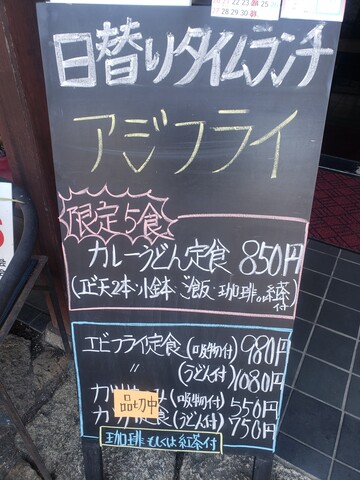 日替りタイムランチ
アジフライ
限定5食
カレーうどん定食 850円
(エビ天2本・小鉢・ご飯・珈琲or紅茶付)
エビフライ定食(吸物付)980円
〃 (うどん付)1080円
(吸物付)550円
定食(うどん付)750円
品切中
珈琲もしくは紅茶付